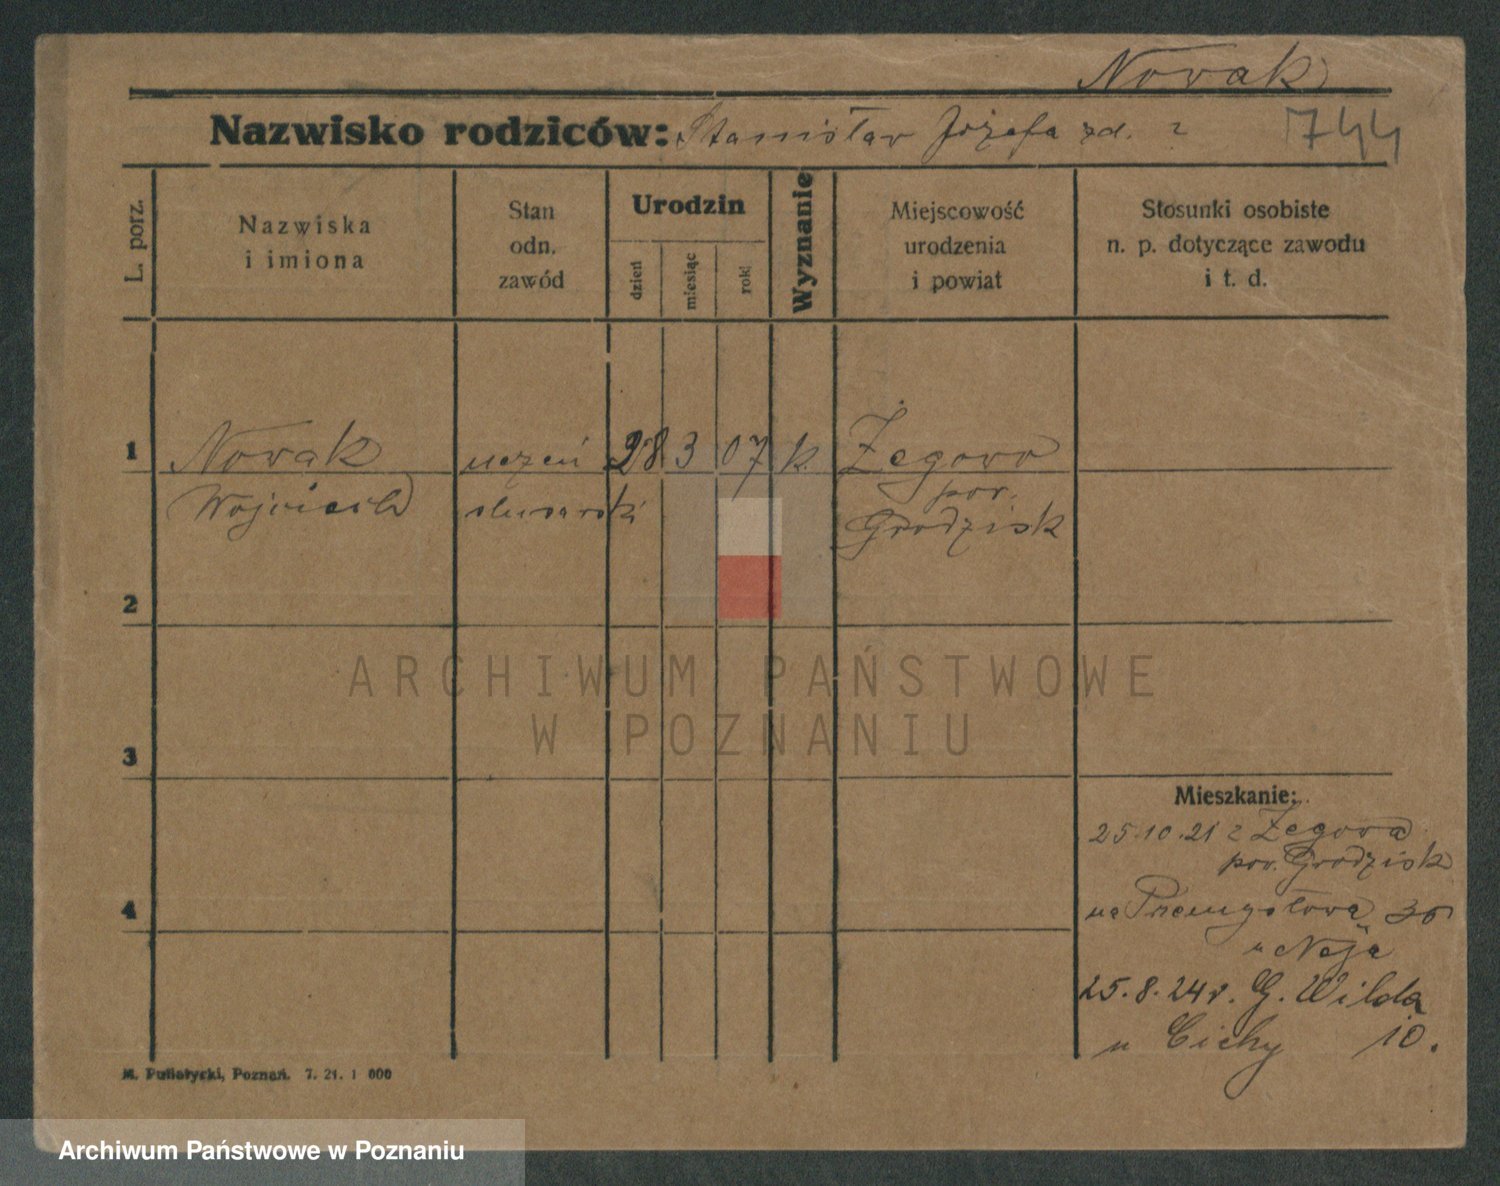 Nowak
Nazwisko rodziców: Stanisław Józefa zd. ?
744
L. porz.
Nazwiska
i imiona
Stan
odn.
zawód
Urodzin
dzień
miesiąc
rok
Wyznanie
Miejscowość
urodzenia
i powiat
Stosunki osobiste
n. p. dotyczące zawodu
i t. d.
1 Nowak uczeń 28 3 07 k. Żegowo
Wojciech ślusarski pow. Grodzisk
2
3
4
ARCHIWUM PAŃSTWOWE
W POZNANIU
Mieszkanie:
25.10.21 z Żegowa
pow. Grodzisk
na Przemysłowa 36
u Neja
25.8.24 r. G. Wilda
u Cichy 10.
M. Putiatycki, Poznań. 7. 21. 1 000
Archiwum Państwowe w Poznaniu